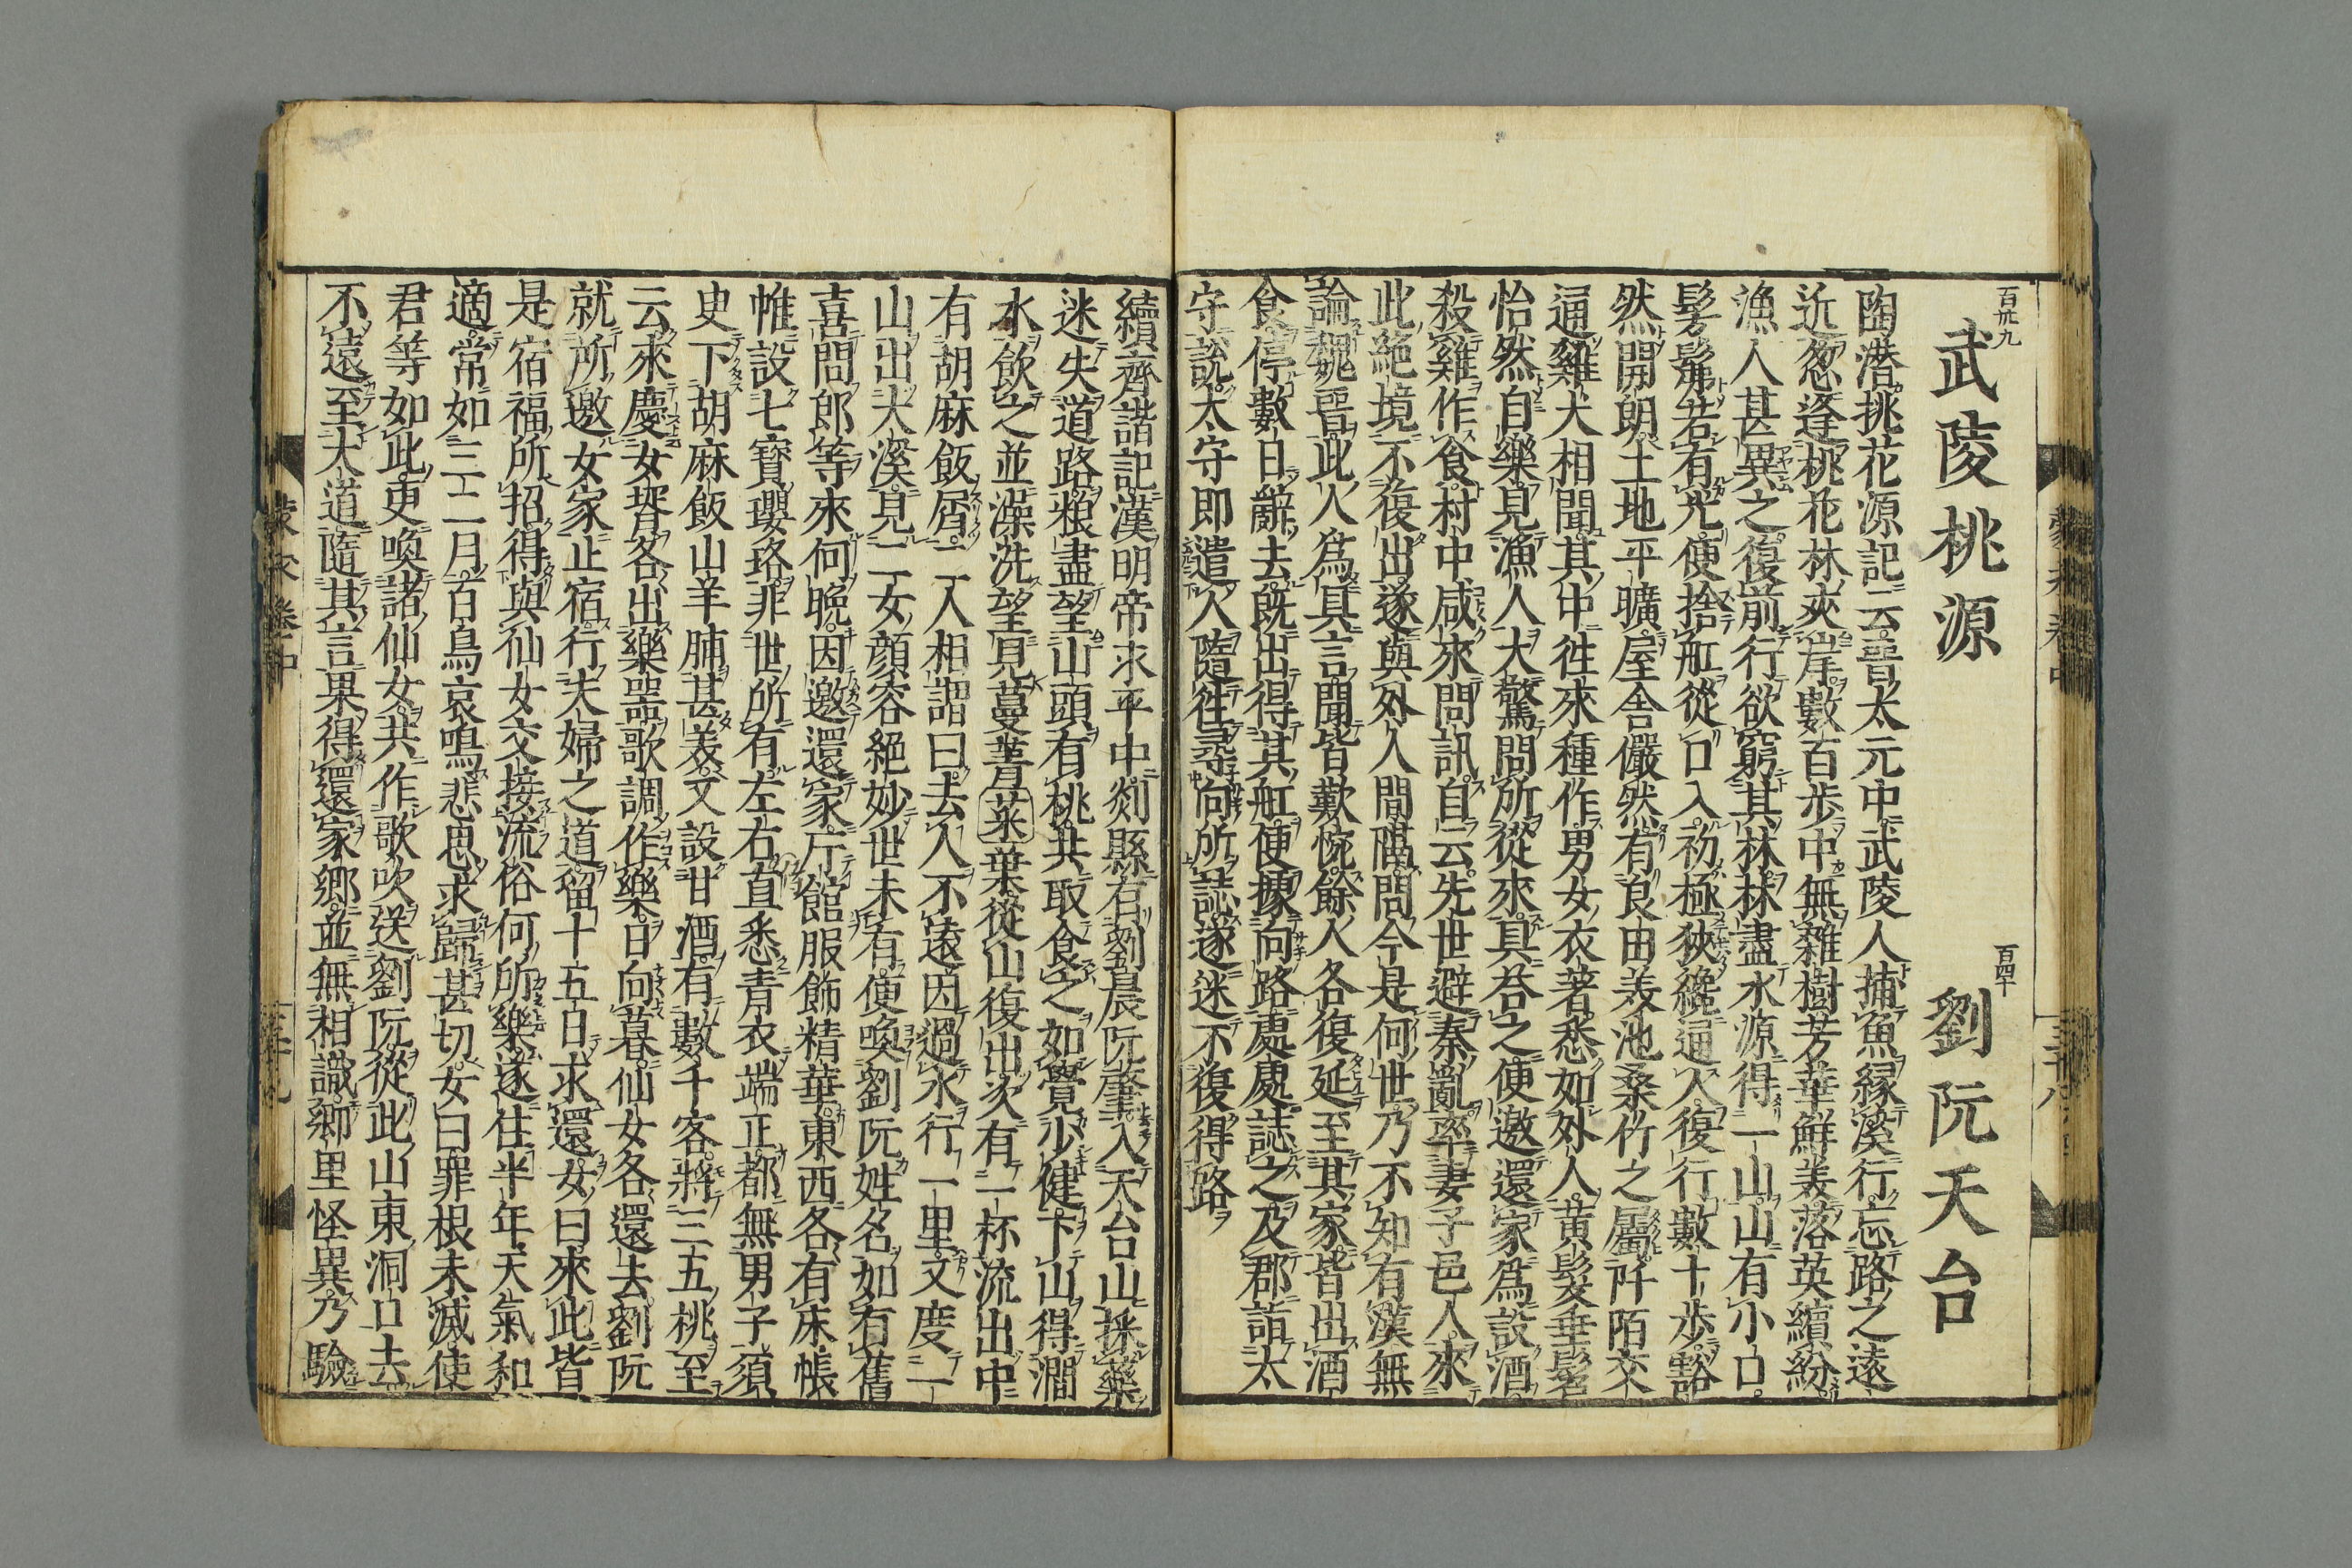 百卅九
武陵桃源
百四十
劉阮天台
陶潛挑花源記云晉太元中武陵人捕魚縁溪行忘路之遠
近忽逢桃花林夾岸數百步中無雜樹芳華鮮美落英繽紛
漁人甚異之復前行欲窮其林林盡水源得一山山有小口
髣髴若有光便捨舡從口入初極狹纔通人復行數十步豁
然開朗土地平曠屋舎儼然有良田美池桑竹之屬阡陌交
通雞犬相聞其中徃來種作男女衣著悉如外人黄髮垂髫
怡然自樂見漁人大驚問所從來具荅之便邀還家爲設酒
殺雞作食村中咸來問訊自云先世避秦亂率妻子邑人來
此絶境不復出遂與外人間隔問今是何世乃不知有漢無
論魏晉此人爲具言聞皆歎惋餘人各復延至其家皆出酒
食停數日辭去既出得其舡便據向路處處誌之及郡詣太
守説太守即遣人隨徃尋向所誌遂迷不復得路
續齊諧記漢明帝永平中剡縣有劉晨阮肇入天台山採藥
迷失道路粮盡望山頭有桃共取食之如覺少健下山得澗
水飲之並澡洗望見蔓菁菜葉從山復出次有一杯流出中
有胡麻飯屑二人相謂曰去人不遠因過水行一里又度一
山出大溪見二女顔容絶妙世未有便喚劉阮姓名如有舊
喜問郎等來何晩因邀還家庁館服飾精華東西各有床帳
帷設七寳瓔珞非世所有左右直悉青衣端正都無男子須
㬰下胡麻飯山羊脯甚美又設甘酒有數千客將三五桃至
云來慶女壻各出樂噐歌調作樂日向暮仙女各還去劉阮
就所邀女家止宿行夫婦之道畱十五日求還女曰來此皆
是宿福所招得與仙女交接流俗何所樂遂住半年天氣和
適常如三二月百鳥哀鳴悲思求歸甚切女曰罪根未滅使
君等如此更喚諸仙女共作歌吹送劉阮從此山東洞口去
不遠至大道隨其言果得還家鄉並無相識鄉里怪異乃驗